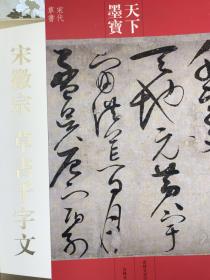 天下
墨寶
宋代
草書
宋徽宗 草書千字文
天地元黄宇
宙洪荒日月
盈昃辰宿列